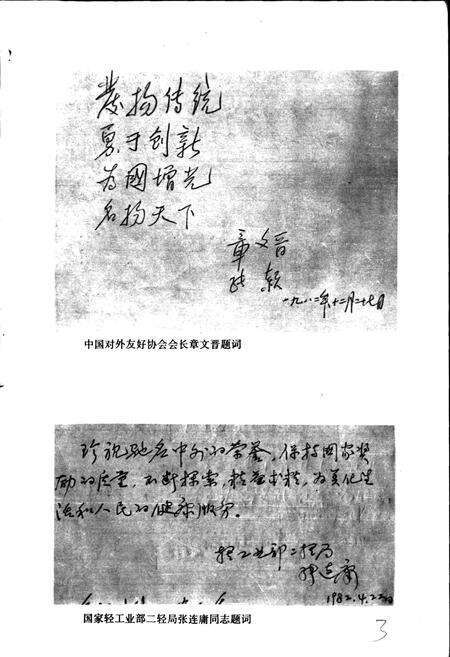 发扬传统
勇于创新
为國增光
名扬天下
章文晋
张颖
一九八二年十二月二十七日
中国对外友好协会会长章文晋题词
珍视驰名中外的荣誉，保持国家奖
励的质量，不断探索，精益求精，为美化生
活和人民的健康服务。
轻工业部二轻局
张连庸
1982.4.22日
国家轻工业部二轻局张连庸同志题词
3